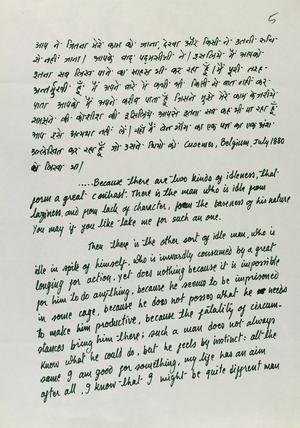 5
आप ने जितना मेरे काम को जाना, देखा और किसी ने इतनी रुचि
से नहीं जाना। आपके बाद पद्मसीजी ने। इसलिये मैं आपको
इतना सब लिख पाने का साहस भी कर रहा हूँ। मैं पूरी तरह
अन्तर्मुखी हूँ। मैं अपने बारे में कभी भी किसी को बात नहीं कर
पाता आपको मैं अपने करीब पाता हूँ जिसने मुझे मेरे काम के जरीये
समझने की कोशीश की है इसिलिये आपसे इतना सब कह भी पा रहा हूँ
आप इसे अन्यथा नहीं लें। यहाँ मैं वेन गोग का एक पत्र का एक अंश
उल्लेखित कर रहा हूँ जो उसने थियो को Cuesmes, Belgium, July 1880
को लिखा था।
.....Because there are two kinds of idleness, that
form a great contrast. There is the man who is idle from
laziness and from lack of character, from the baseness of his nature
You may if you like take me for such an one.
Then there is the other sort of idle man, who is
idle in spite of himself, who is inwardly consumed by a great
longing for action, yet does nothing because it is impossible
for him to do anything, because he seems to be imprisoned
in some cage, because he does not posses what he needs
to make him productive, because the fatality of circum-
stances bring him there; such a man does not always
know what he could do, but he feels by instinct: all the
same I am good for something, my life has an aim
after all, I know that I might be quite different man